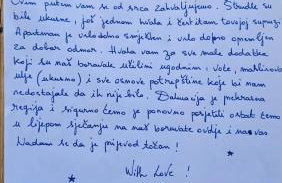 Ovim putem vam se od srca zahvaljujemo. Štrudle su
bile ukusne, još jednom hvala i čestitam tvojoj supruzi
Apartman je vrlo dobro smješten i vrlo dobro opremljen
za dobar odmor. Hvala vam za sve male dodatke
koji su naš boravak učinili ugodnim: vode, maslinovo
ulje (ukusno) i sve osnove potrepštine koje bi nam
nedostajale da ih nije bilo. Dalmacija je prekrasna
regija i sigurno ćemo je ponovo posjetiti ostat ćemo
u lijepom sjećanju na naš boravak ovdje i na vas
Nadam se da je prijevod točan!
With Love!